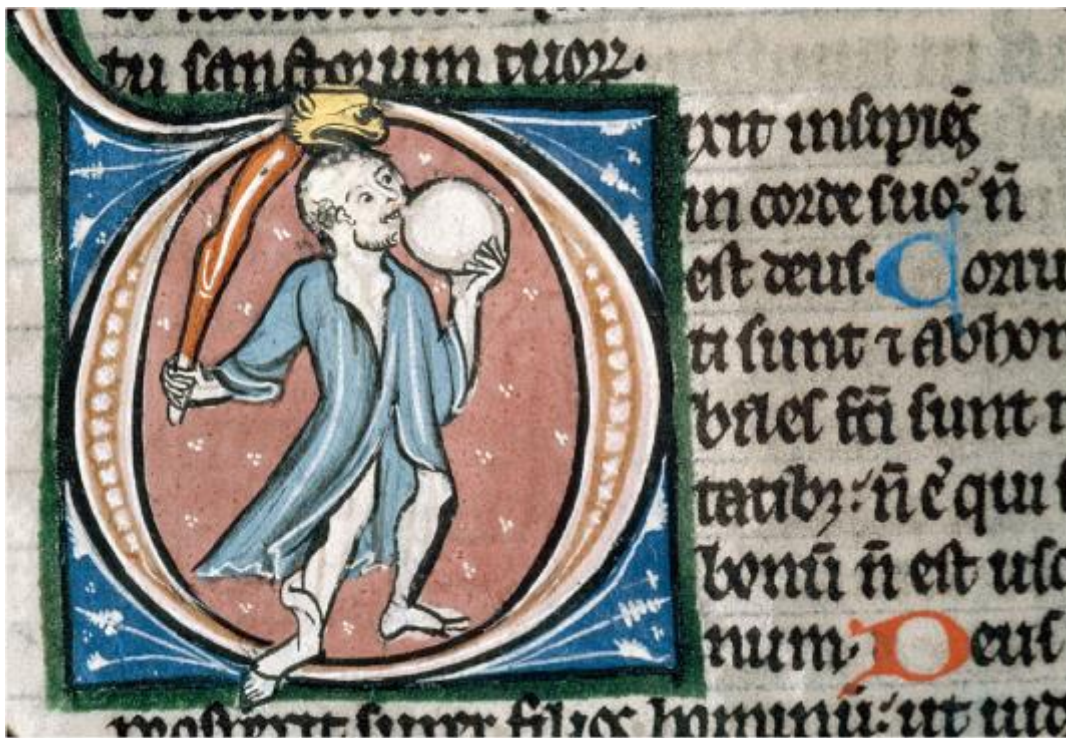 tu sanctorum tuorꝝ.
Dixit insipiēs
in corde suo: n̄
est deus. Corru
ti sunt ⁊ abhom
biles fc̄i sunt
tatibꝫ: n̄ ē qui
bonū n̄ est usq
num. Deus
prospexit super filios hominū: ut uid